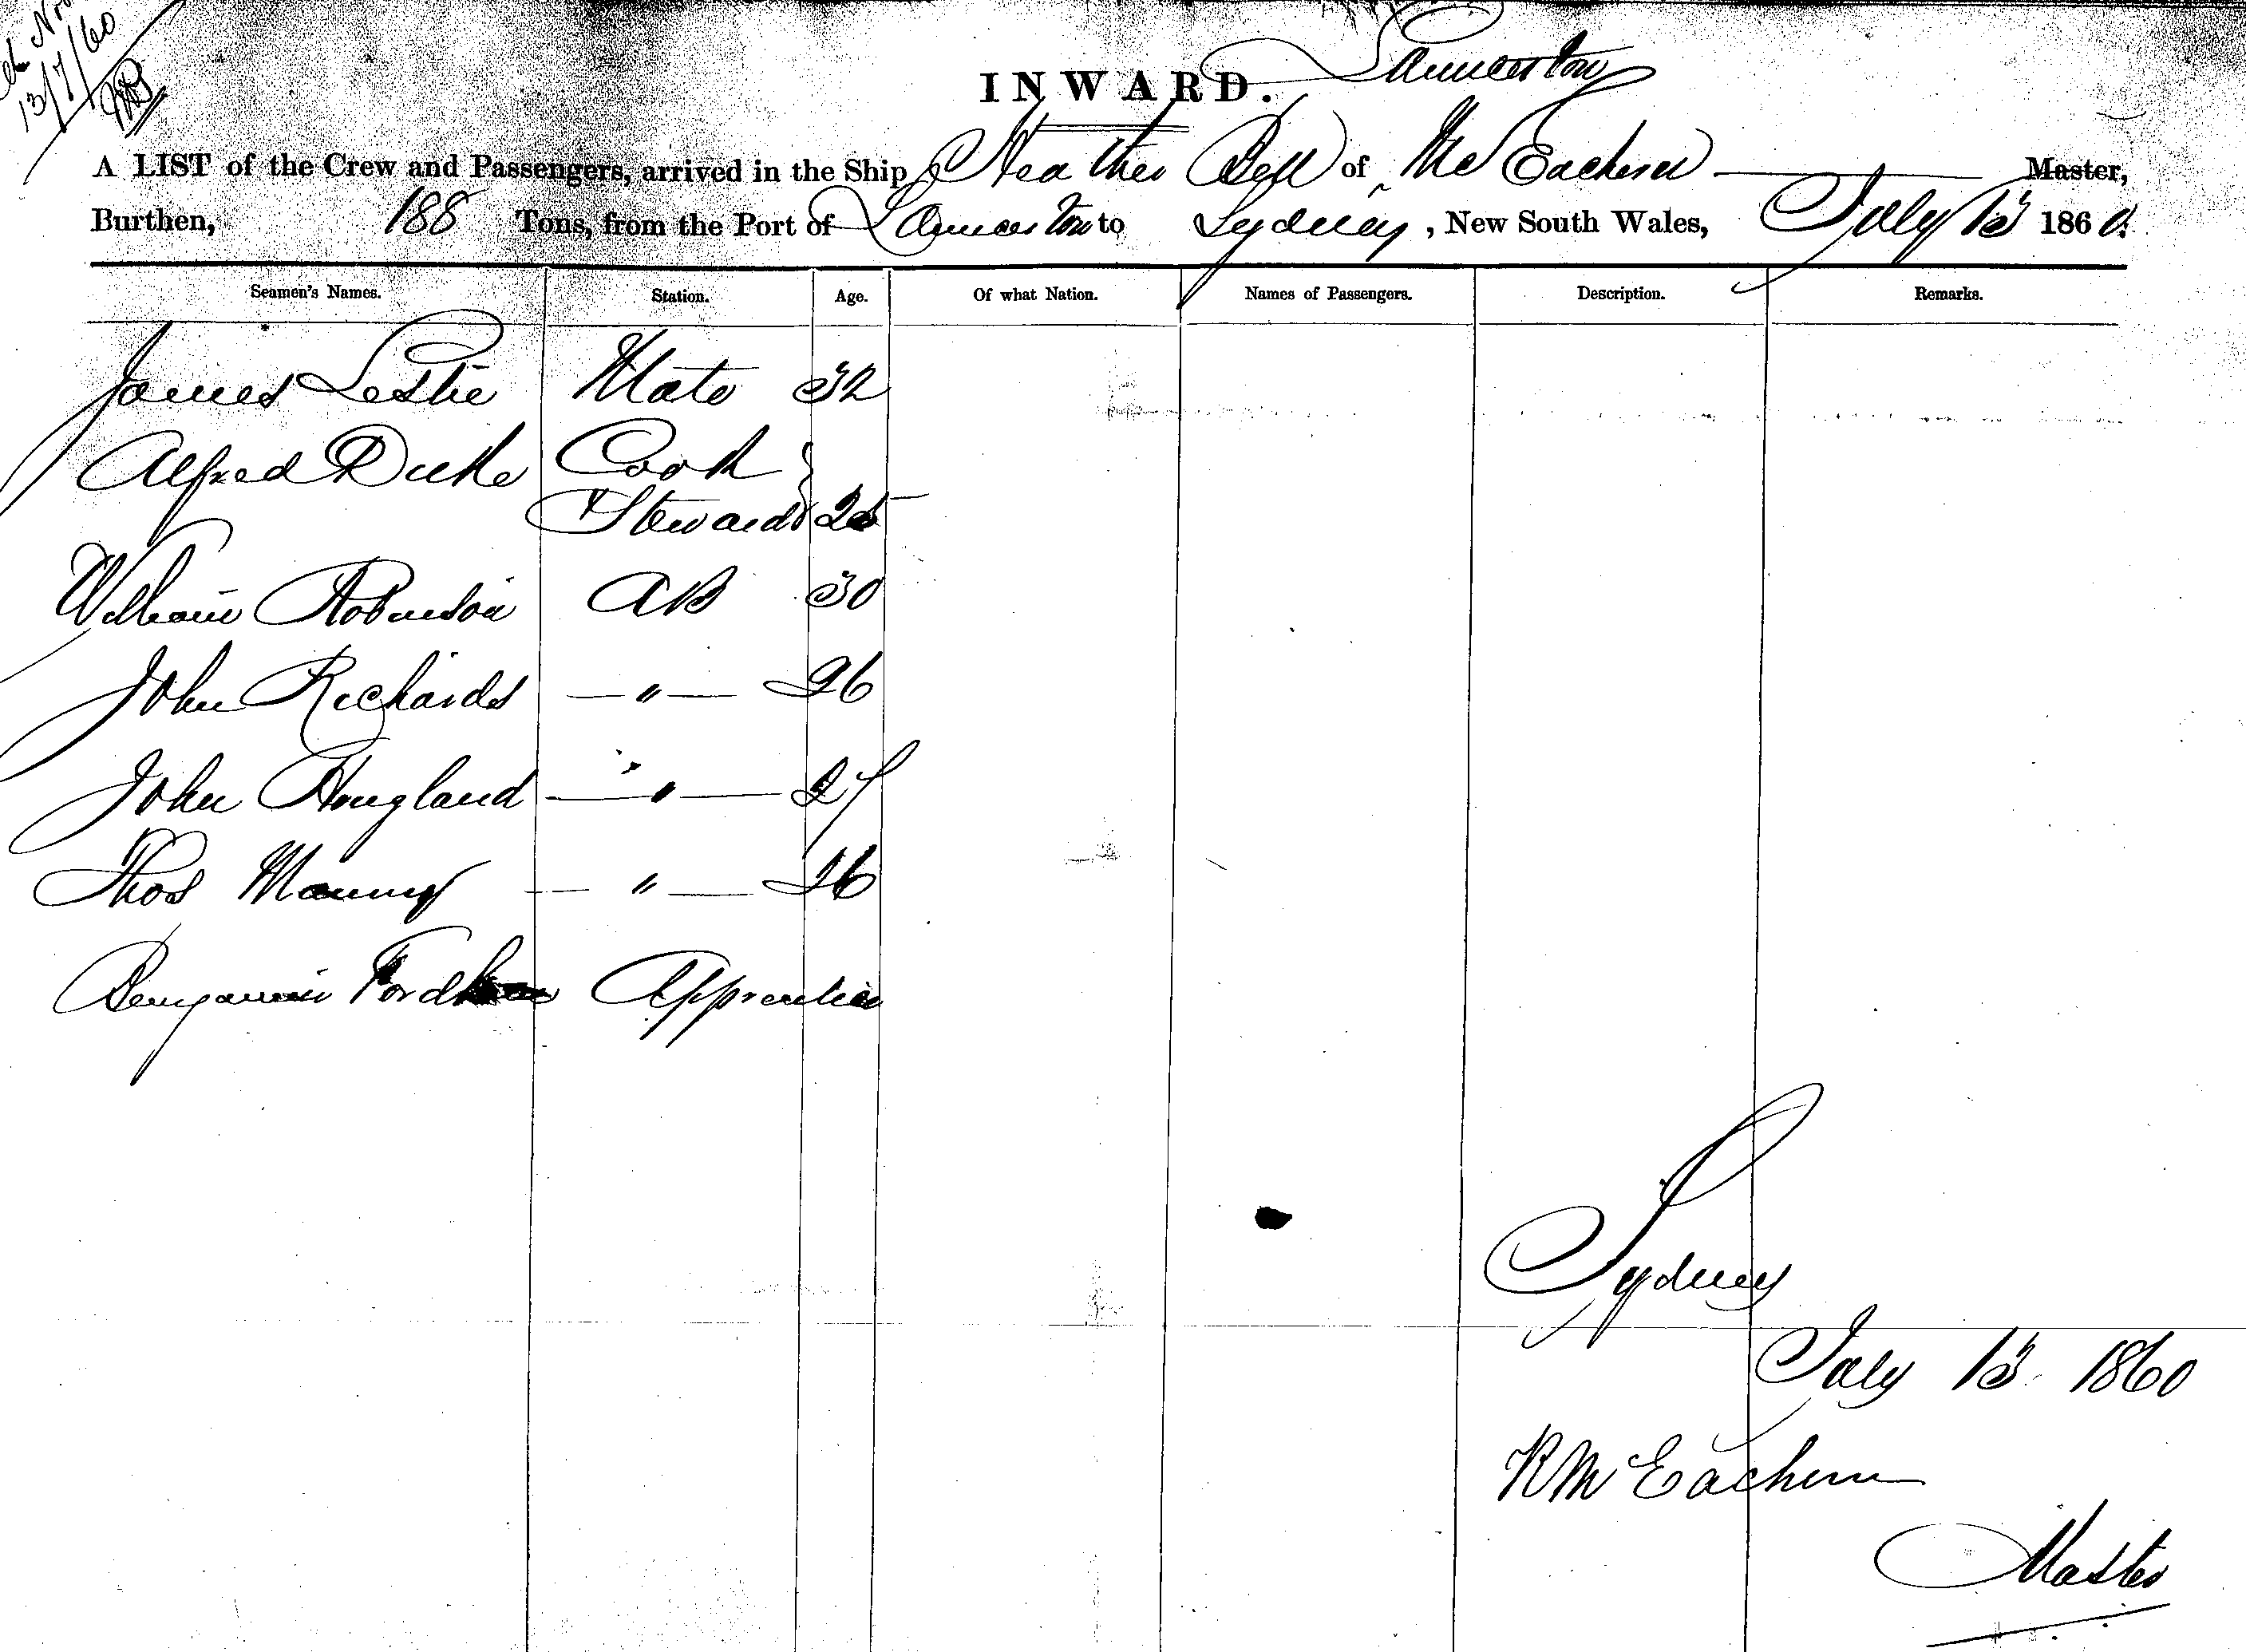 13/7/60
Launceston
INWARD.
A LIST of the Crew and Passengers, arrived in the Ship Heather Bell of McEachern Master,
Burthen, 188 Tons, from the Port of Launceston to Sydney, New South Wales, July 13 1860.
Seamen's Names. Station. Age. Of what Nation. Names of Passengers. Description. Remarks.
James Leslie Mate 32
Alfred Duke Cook
& Steward 25
William Robinson AB 30
John Richards — " — 26
John Hougland — " — 27
Thos — " — 26
Benjamin Apprentice
Sydney
July 13 1860
R McEachern
Master